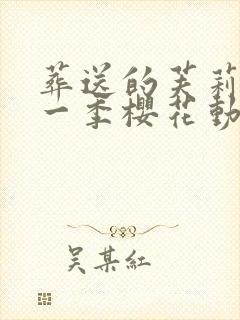 葬送的芙莉
一季櫻花動
吴某紅